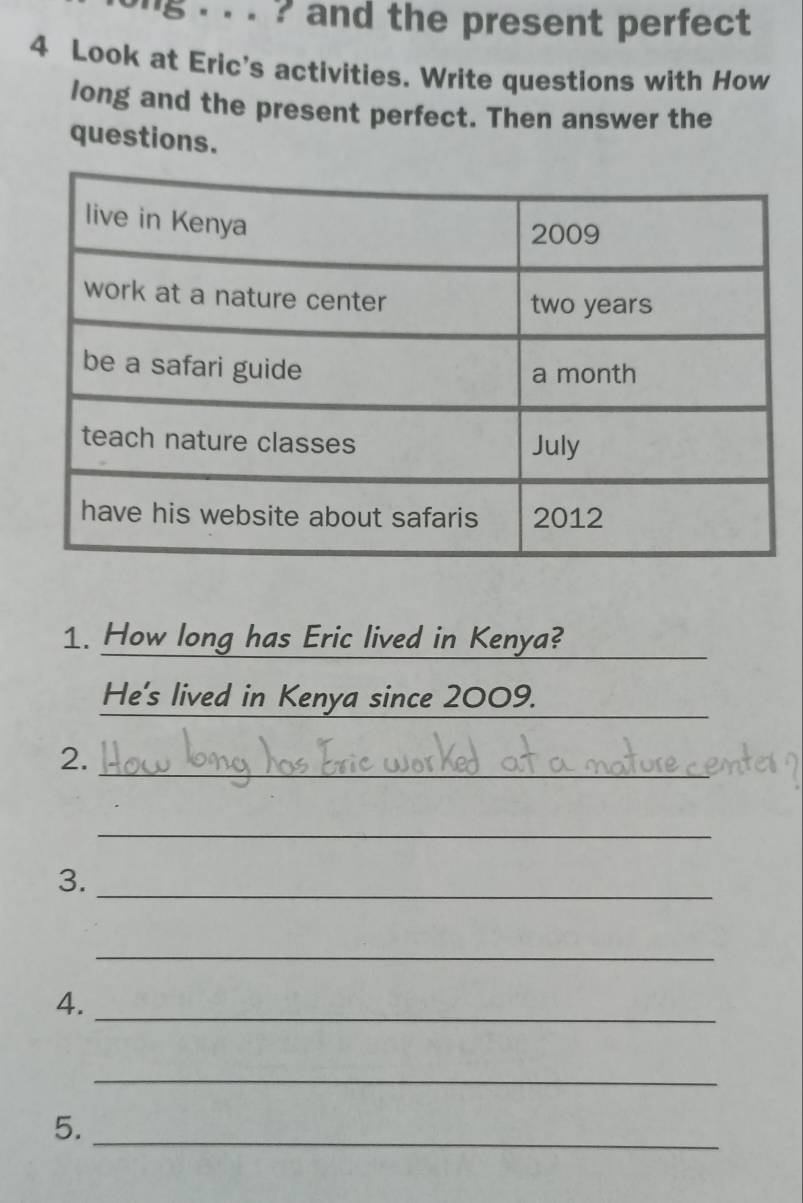 . . . ? and the present perfect
4 Look at Eric's activities. Write questions with How
long and the present perfect. Then answer the
questions.
live in Kenya 2009
work at a nature center two years
be a safari guide a month
teach nature classes July
have his website about safaris 2012
1. How long has Eric lived in Kenya?
He's lived in Kenya since 2009.
2. How long has Eric worked at a nature center?
3.
4.
5.